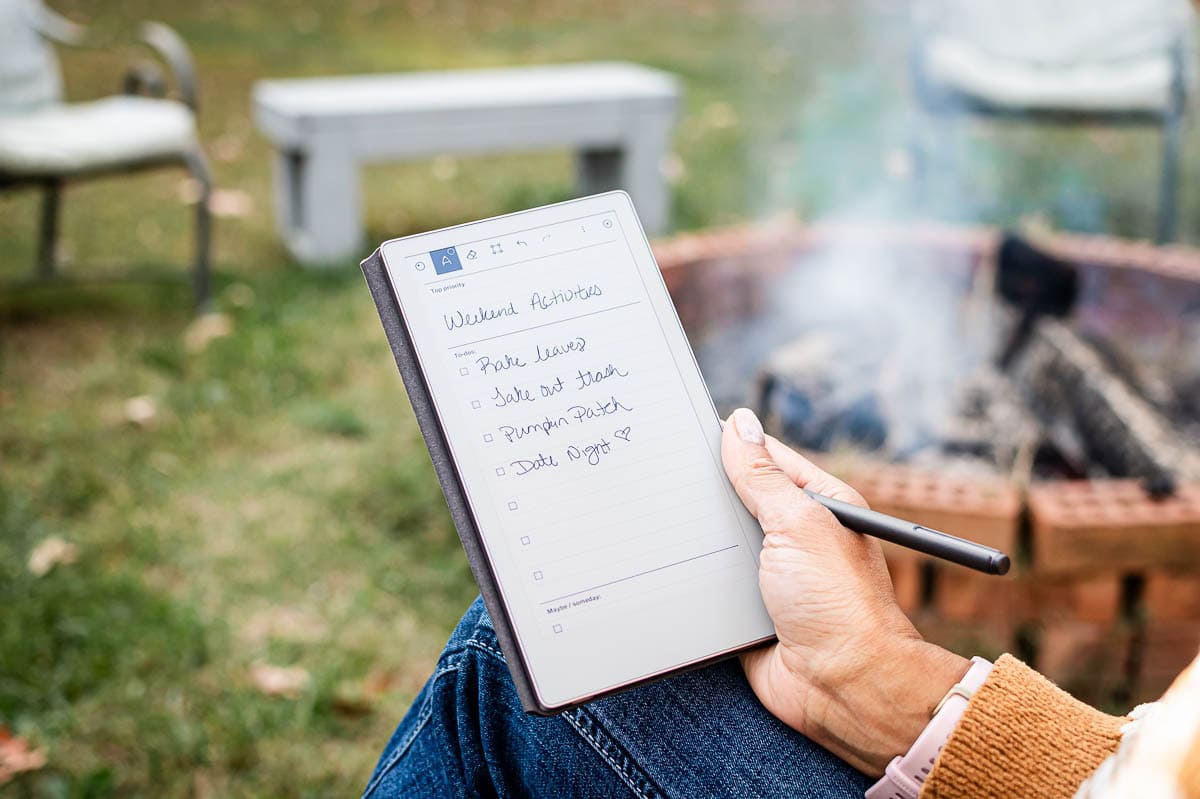 A
Top priority
Weekend Activities
To-dos:
Rake leaves
Take out trash
Pumpin Patch
Date Night ♡
Maybe / someday: